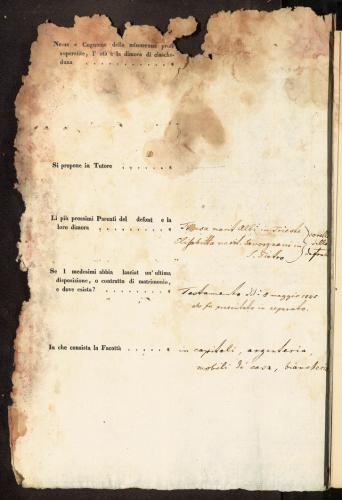 Nome e Cognome della minorenne prole
superstite, l' età e la dimora di ciasche-
duna . . . . . . . . . . . . . .
Si propone in Tutore . . . . . . . .
Li più prossimi Parenti del defont e la
loro dimora . . . . . . . . . . . .
Teresa marit. Albi in Trieste
Elisabetta in
S. Pietro
sorelle
della
defonta
Se i medesimi abbia lasciat un' ultima
disposizione, o contratto di matrimonio,
e dove esista? . . . . . . . . . . .
Testamento ddi 8 maggio 1845
che fu presentato in separato.
In che consista la Facoltà . . . . . .
in capitali, argenteria,
mobili di casa, biancheria